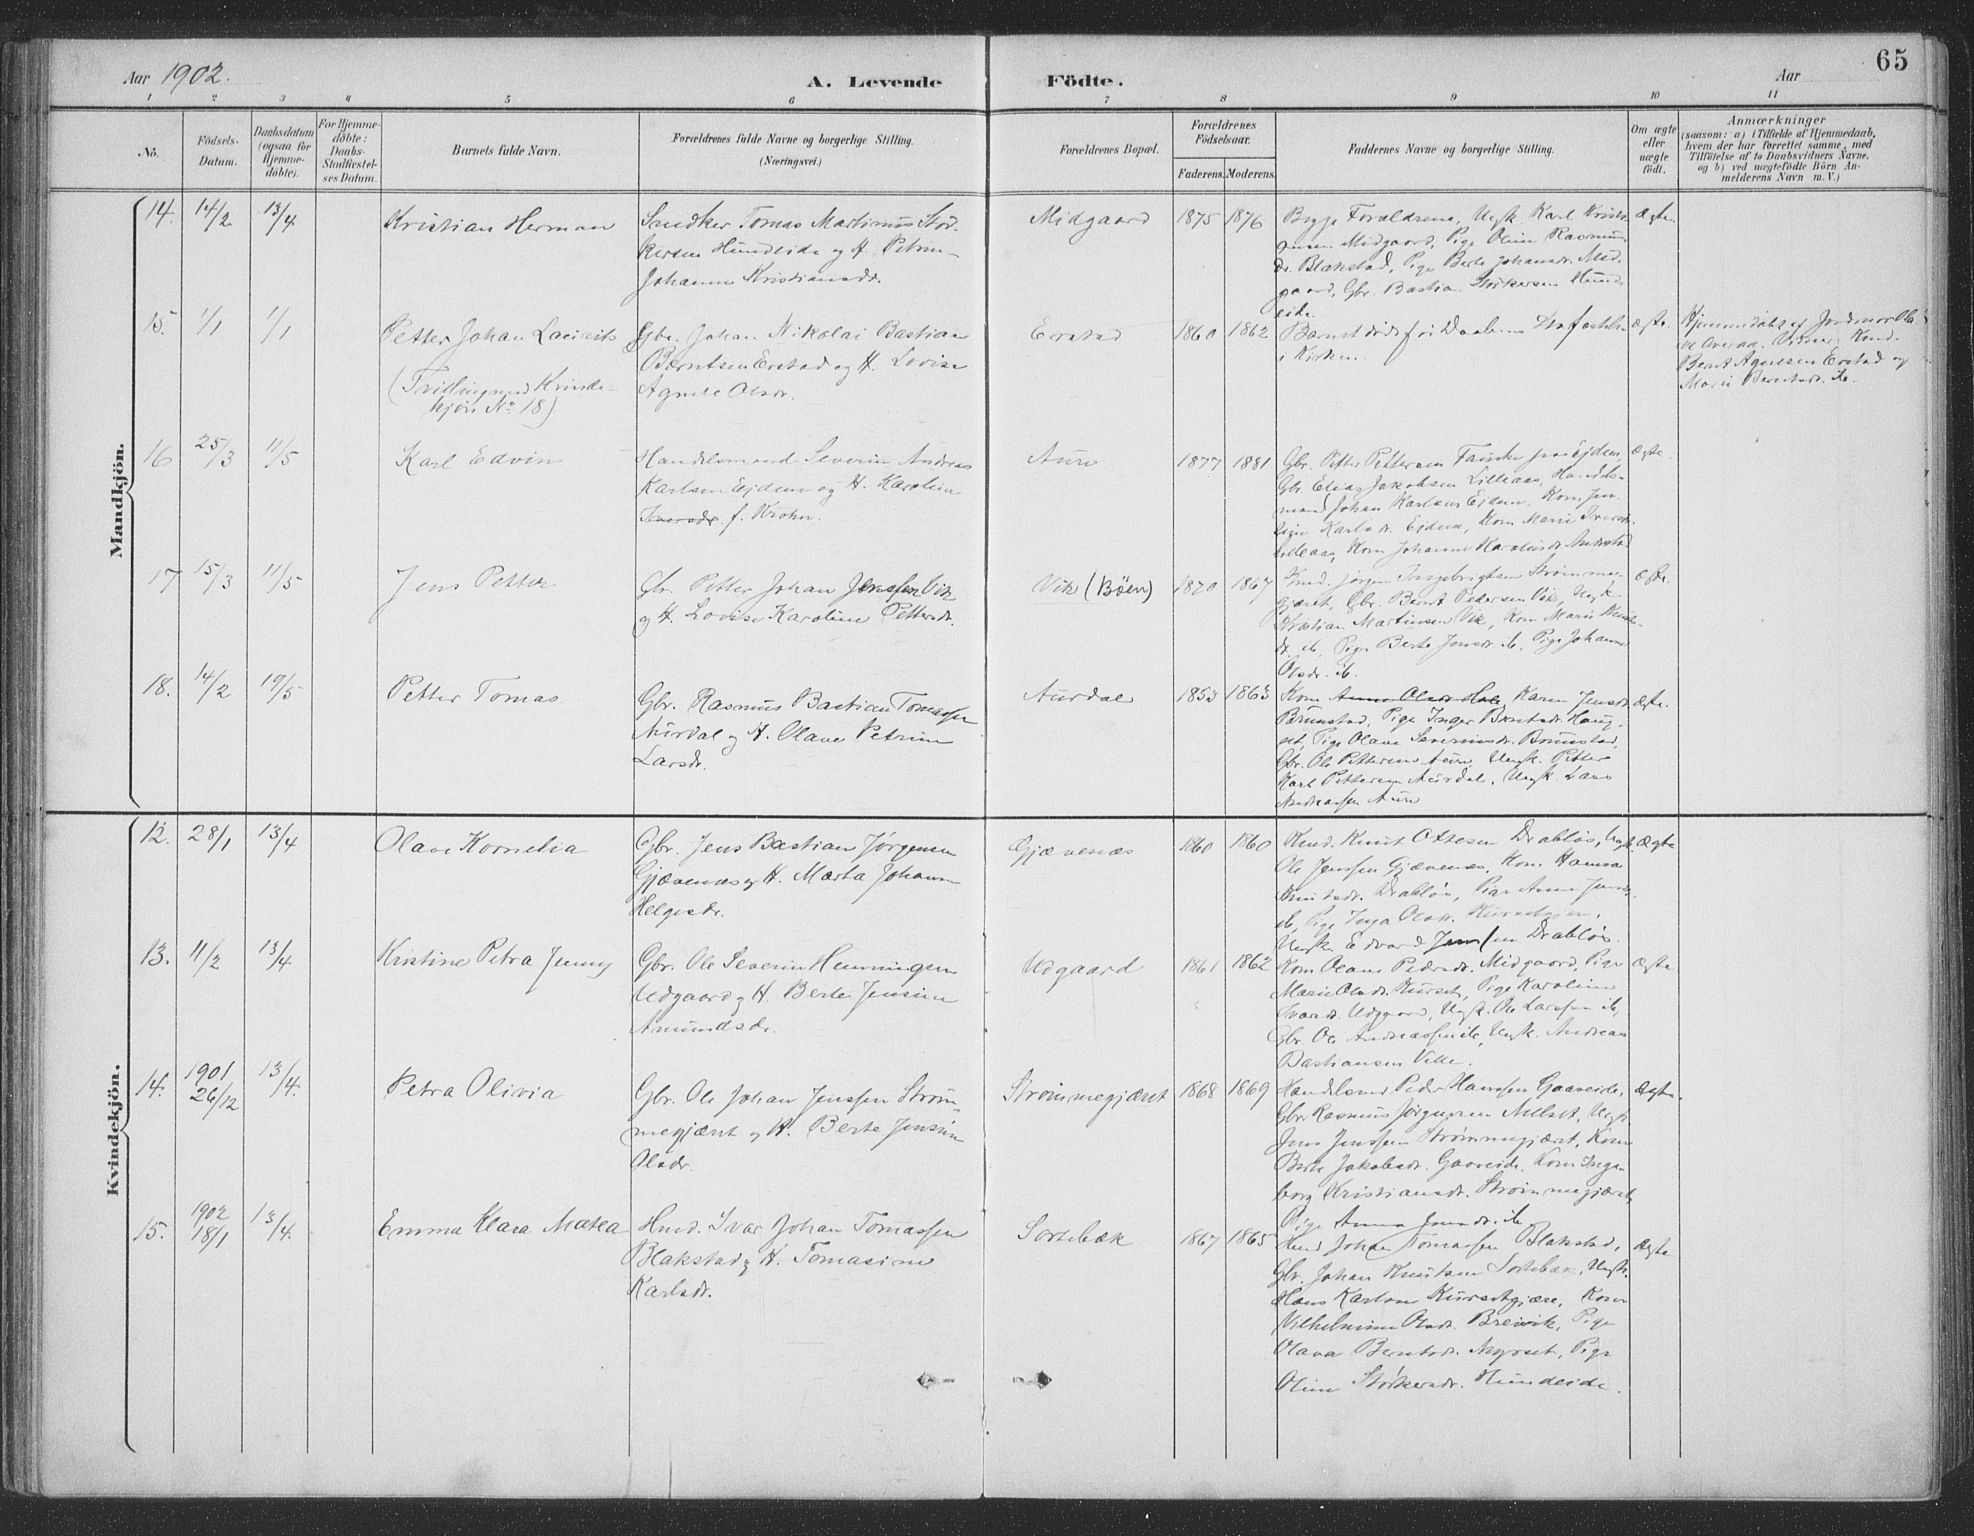 Aar 1902.
A. Levende Födte.
Aar
65
1 2 3 4 5 6 7 8 9 10 11
No.
Födsels-Datum.
Daabsdatum (ogsaa for Hjemme-döbte).
For Hjemme-döbte: Daabs-Stadfæstel-ses Datum.
Barnets fulde Navn.
Forældrenes fulde Navne og borgerlige Stilling. (Næringsvei.)
Forældrenes Bopæl.
Forældrenes Födselsaar.
Faderens. Moderens.
Faddernes Navne og borgerlige Stilling.
Om ægte eller uægte födt.
Anmærkninger
(saasom: a) i Tilfælde af Hjemmedaab,
hvem der har forrettet samme, med
Tilföielse af to Daabsvidners Navne.
og b) ved uægtefödte Börn An-
melderens Navn m. V.)
Mandkjön.
14. 14/2 13/4 Kristian Herman
Sandker Tomas Martinus Stor-
kersen Hundeide og H. Petrine
Johanne Kristiansdr.
Midgaard 1875 1876
Begge Forældrene, Ungk. Karl Kristi-
ansen Midgaard, Pige Oline Rasmus-
dr. Blakstad, Pige Berte Johansdr. Mid-
gaard, Gbr. Bastian Störkersen Hund-
eide.
Ægte
15. 1/1 1/1 Petter Johan Laurits
(Tvilling med Kvinde-
kjön No 18)
Gbr. Johan Nikolai Bastian
Berntsen Erstad og H. Lovise
Agnete Olsdr.
Erstad 1860 1862
Barnet döde för Daabens Stadfæstelse
i Kirken.
ægte.
Hjemmedöbt af Jordmor
Overaa. Vidner: Kmd.
Bernt Agnesen Erstad og
Marie Berntsdr. ib.
16 25/3 11/5 Karl Edvin
Handelsmand Severin Andreas
Karlsen Ejdem og H. Karoline
Iversdr. f. Krohn.
Aure 1877 1881
Gbr. Petter Pettersen Fauske Ejdem,
Gbr. Elias Jakobsen Lilleaas, Handels-
mand Johan Karlsen Ejdem, Kom
Karlsdr. Ejdem, Kom Marie Iversdr.
Lilleaas, Kom Johanne Karolusdr.
Ægte.
17 15/3 11/5 Jens Petter
Gbr. Petter Johan Jenssen Vik
og H. Lovise Karoline Pettersdr.
Vik (Böen) 1870 1867
Kmd. Jörgen Ingebrigtsen Strömme-
gjæret, Gbr. Bernt Pedersen Vik, Ungk.
Kristian Martinsen Vik, Kom Marie
dr. ib. Pige Berte Jensdr. ib. Pige Johanne
Olsdr. ib.
Ægte.
18. 14/2 19/5 Petter Tomas
Gbr. Rasmus Bastian Tomassen
Aurdal og H. Olave Petrine
Larsdr.
Aurdal 1853 1863
Kom Anne Olsdr. Karen Jensdr.
Brunstad, Pige Inger Berntsdr. Haug-
set, Pige Olave Severinsdr. Brunstad,
Gbr. Ole Pettersen Aure, Ungk. Petter
Karl Pettersen Aurdal, Ungk. Lars
Andreassen Aure
Ægte.
Kvindekjön.
12. 28/1 13/4 Olave Kornelia
Gbr. Jens Bastian Jörgensen
Gjævenæs og H. Marta Johanne
Helgesdr.
Gjævenæs 1860 1860
Kmd. Knut Ottesen Drablös, Ungk.
Ole Jenssen Gjævenæs, Kom Hanna
Knutsdr. Drablös, Pige Anne Jensdr.
ib, Pige Inga Olsdr. Kursetgjære,
Ungk. Edvard Jenssen Drablös.
Ægte
13. 11/2 13/4 Kristine Petra Jenny
Gbr. Ole Severin Henningsen
Udgaard og H. Berte Jensine
Amundsdr.
Udgaard 1861 1862
Kom Olave Pedersdr. Midgaard, Pige
Marie Olsdr. Kurset, Pige Karoline
Ivarsdr. Udgaard, Ungk. Ole Larssen ib,
Gbr. Ole Andreassen ib, Ungk. Andreas
Bastiansen Velle.
Ægte
14. 1901 26/12 13/4 Petra Olivia
Gbr. Ole Johan Jenssen Ström-
megjæret og H. Berte Jensine
Olsdr.
Strömmegjæret 1868 1869
Handelsmd Peder Hanssen Gaaseide,
Gbr Rasmus Jörgensen Melset, Ungk.
Jens Jenssen Strömmegjæret, Kom
Berte Jakobsdr. Gaaseide, Kom Inge-
borg Kristiansdr. Strömmegjæret,
Pige Anna Jensdr. ib
Ægte.
15. 1902 18/1 13/4. Emma Klara Matea
Hmd. Ivar Johan Tomassen
Blakstad og H. Tomasine
Karlsdr.
Sortebæk 1867 1865
Kmd Johan Tomassen Blakstad,
Gbr. Johan Knutsen Sortebæk, Ungk.
Hans Karlsen Kursetgjære, Kom
Vilhelmine Olsdr. Brevik, Pige
Olava Berntsdr. Myrset, Pige
Oline Störkersdr. Hundeide.
Ægte